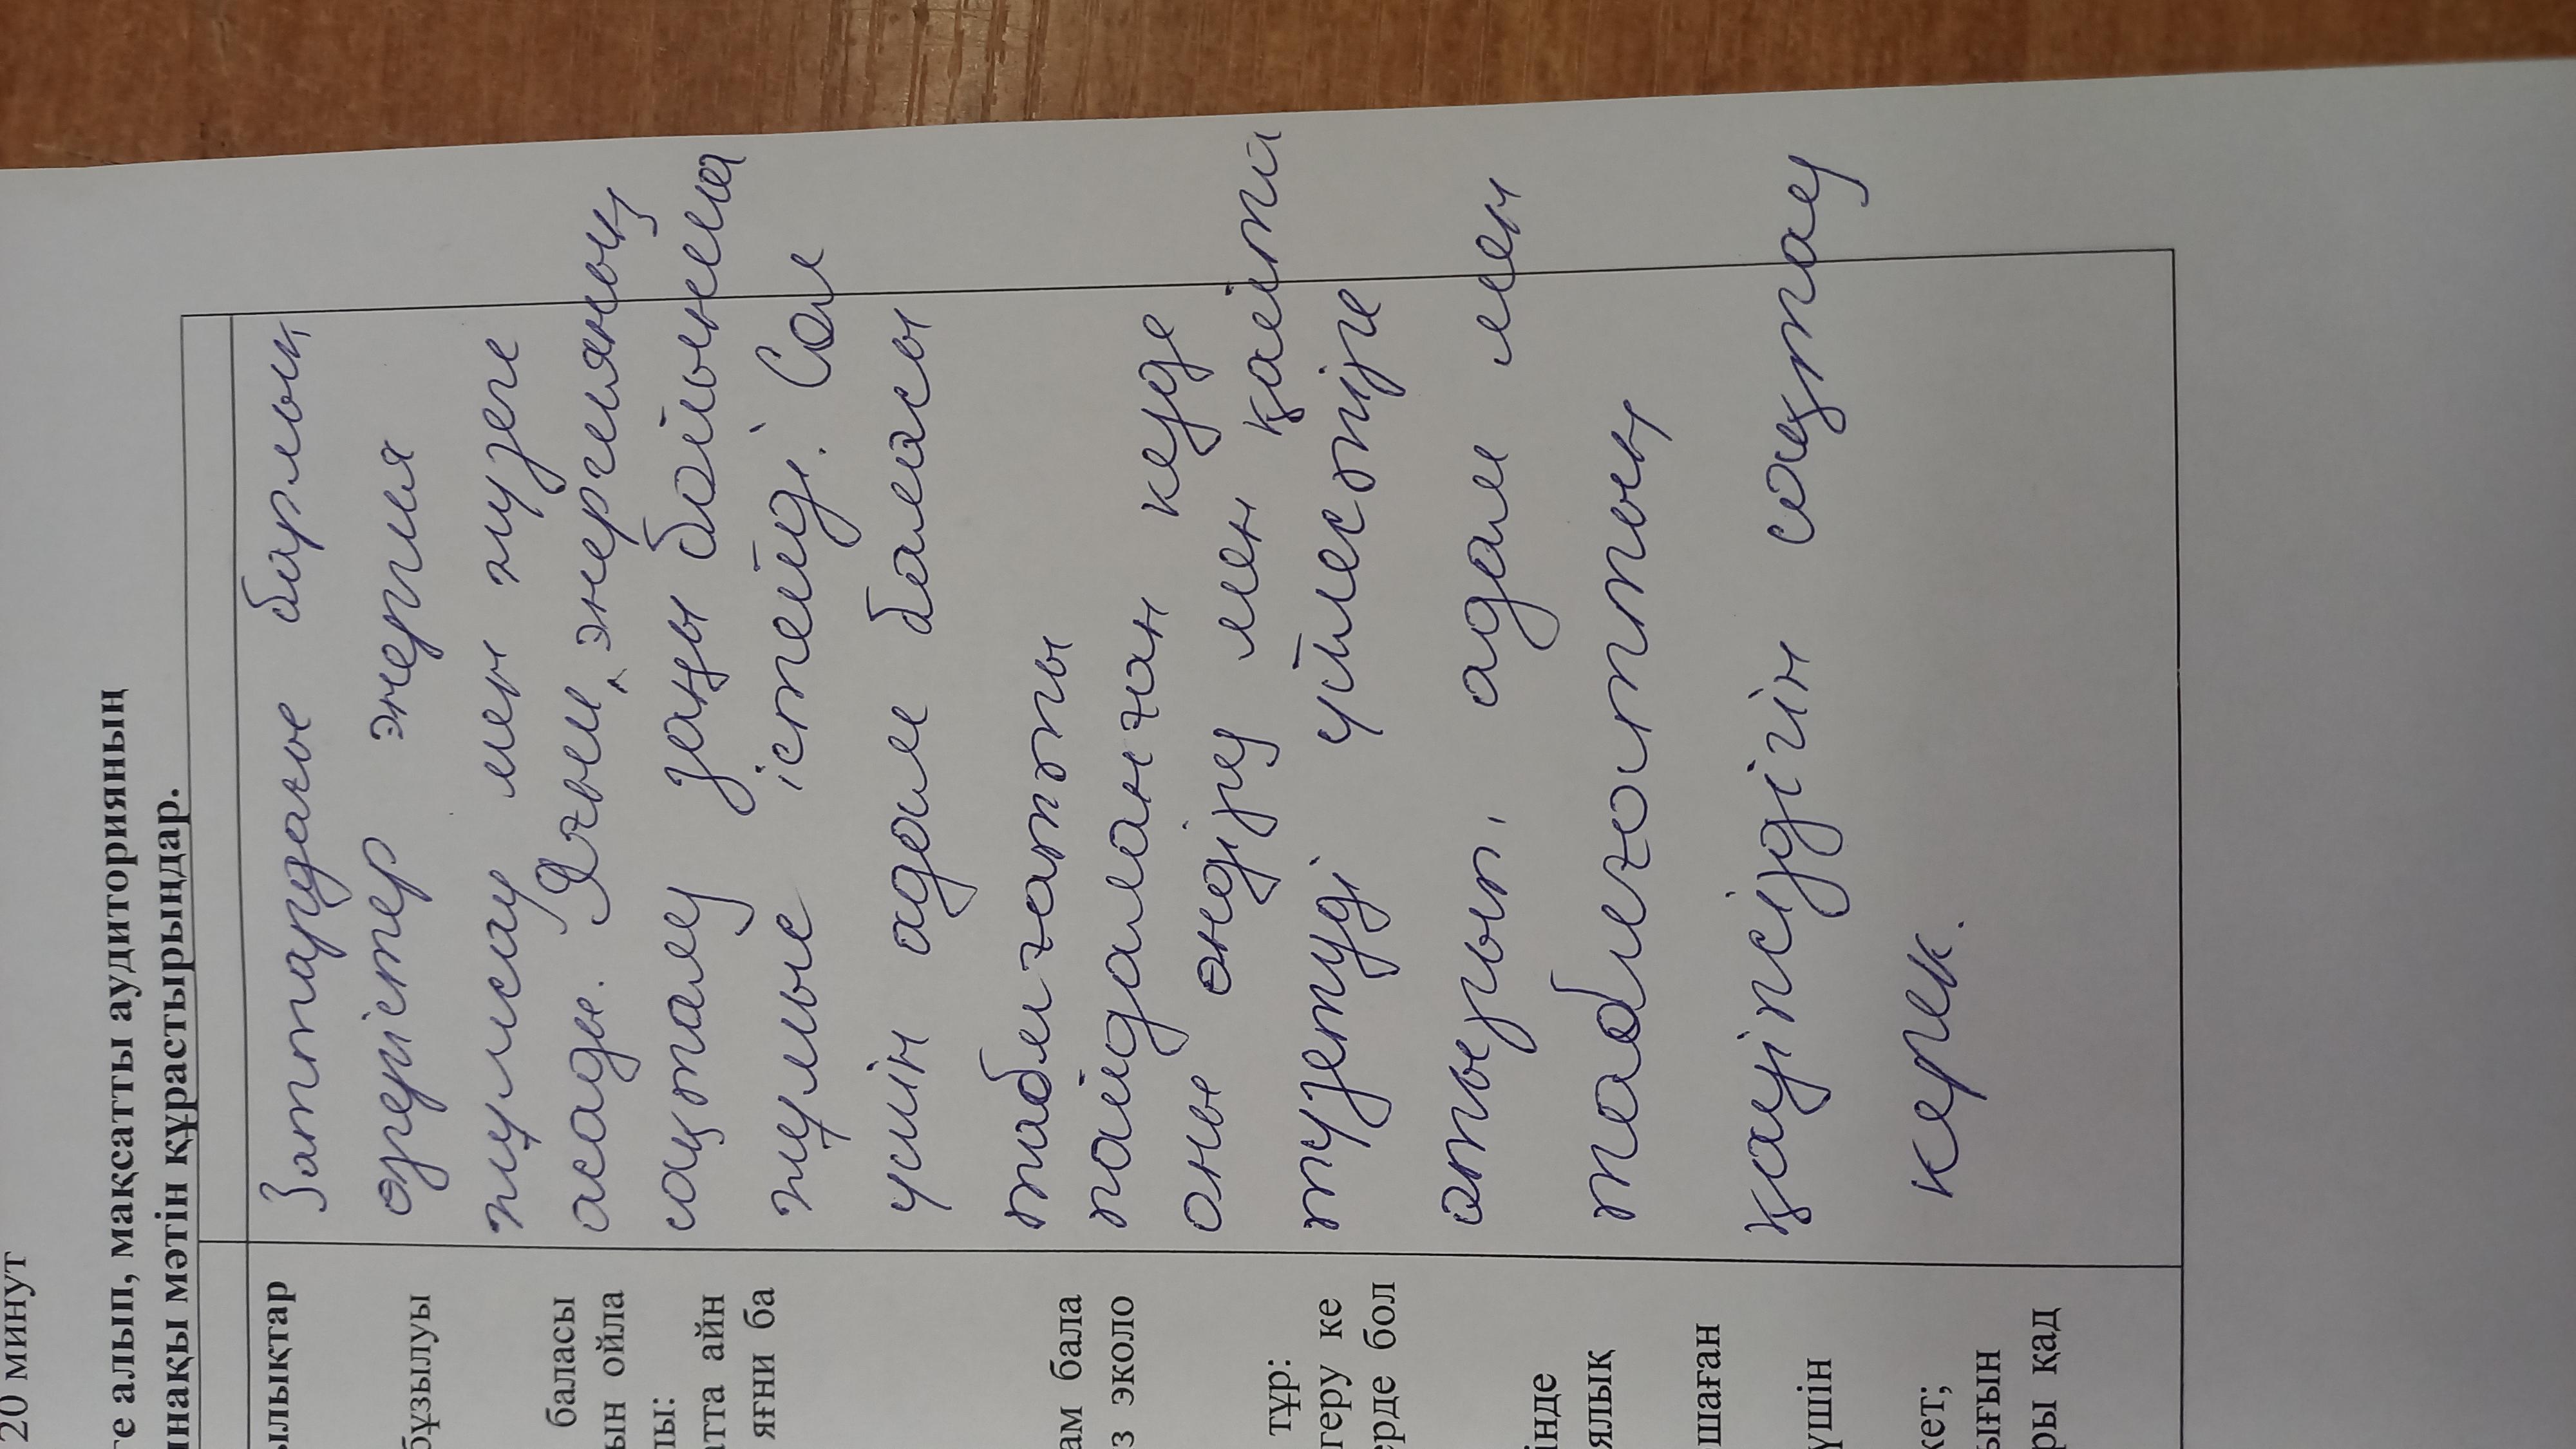 20 минут
ге алып, мақсатты аудиторияның
ннақы мәтін құрастырыңдар.
ылықтар
бұзылуы
баласы
ын ойла
лы:
атта айн
яғни ба
ам бала
з эколо
тұр:
геру ке
ерде бол
інде
ялық
ршаған
үшін
кет;
ығын
ры қад
Заттардағы барлық
өзгерістер энергия
жұмсау мен жүзеге
асады. Яғни, энергияның
сақталу заңы бойынша
жұмыс істейді. Сол
үшін адам баласы
табиғатты
пайдаланған кезде
оны өндіру мен қайта
түзетуді үйлестіре
отырып, адам мен
табиғаттың
қауіпсіздігін сақтау
керек.